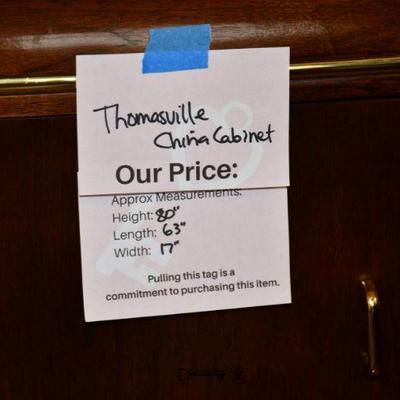 Thomasville
China Cabinet
Our Price:
Approx Measurements:
Height: 80"
Length: 63"
Width: 17"
Pulling this tag is a
commitment to purchasing this item.